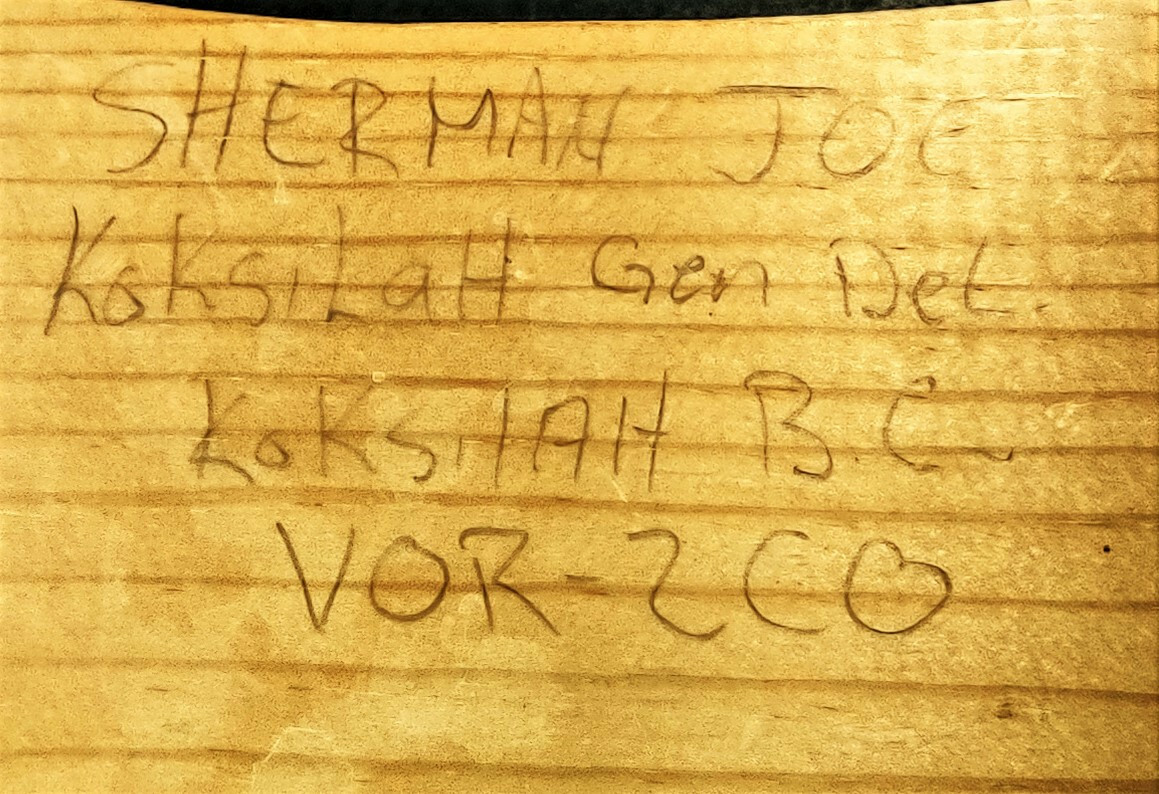 SHERMAN JOE
KoKsiLaH Gen Del.
KoKsilAH B.C.
VOR-2CO